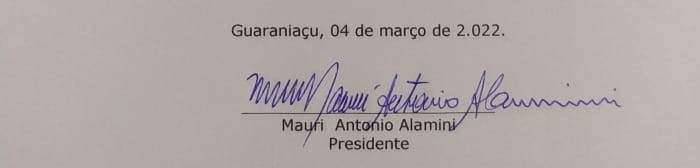 Guaraniaçu, 04 de março de 2.022.
Mauri Antonio Alamini
Mauri Antonio Alamini
Presidente